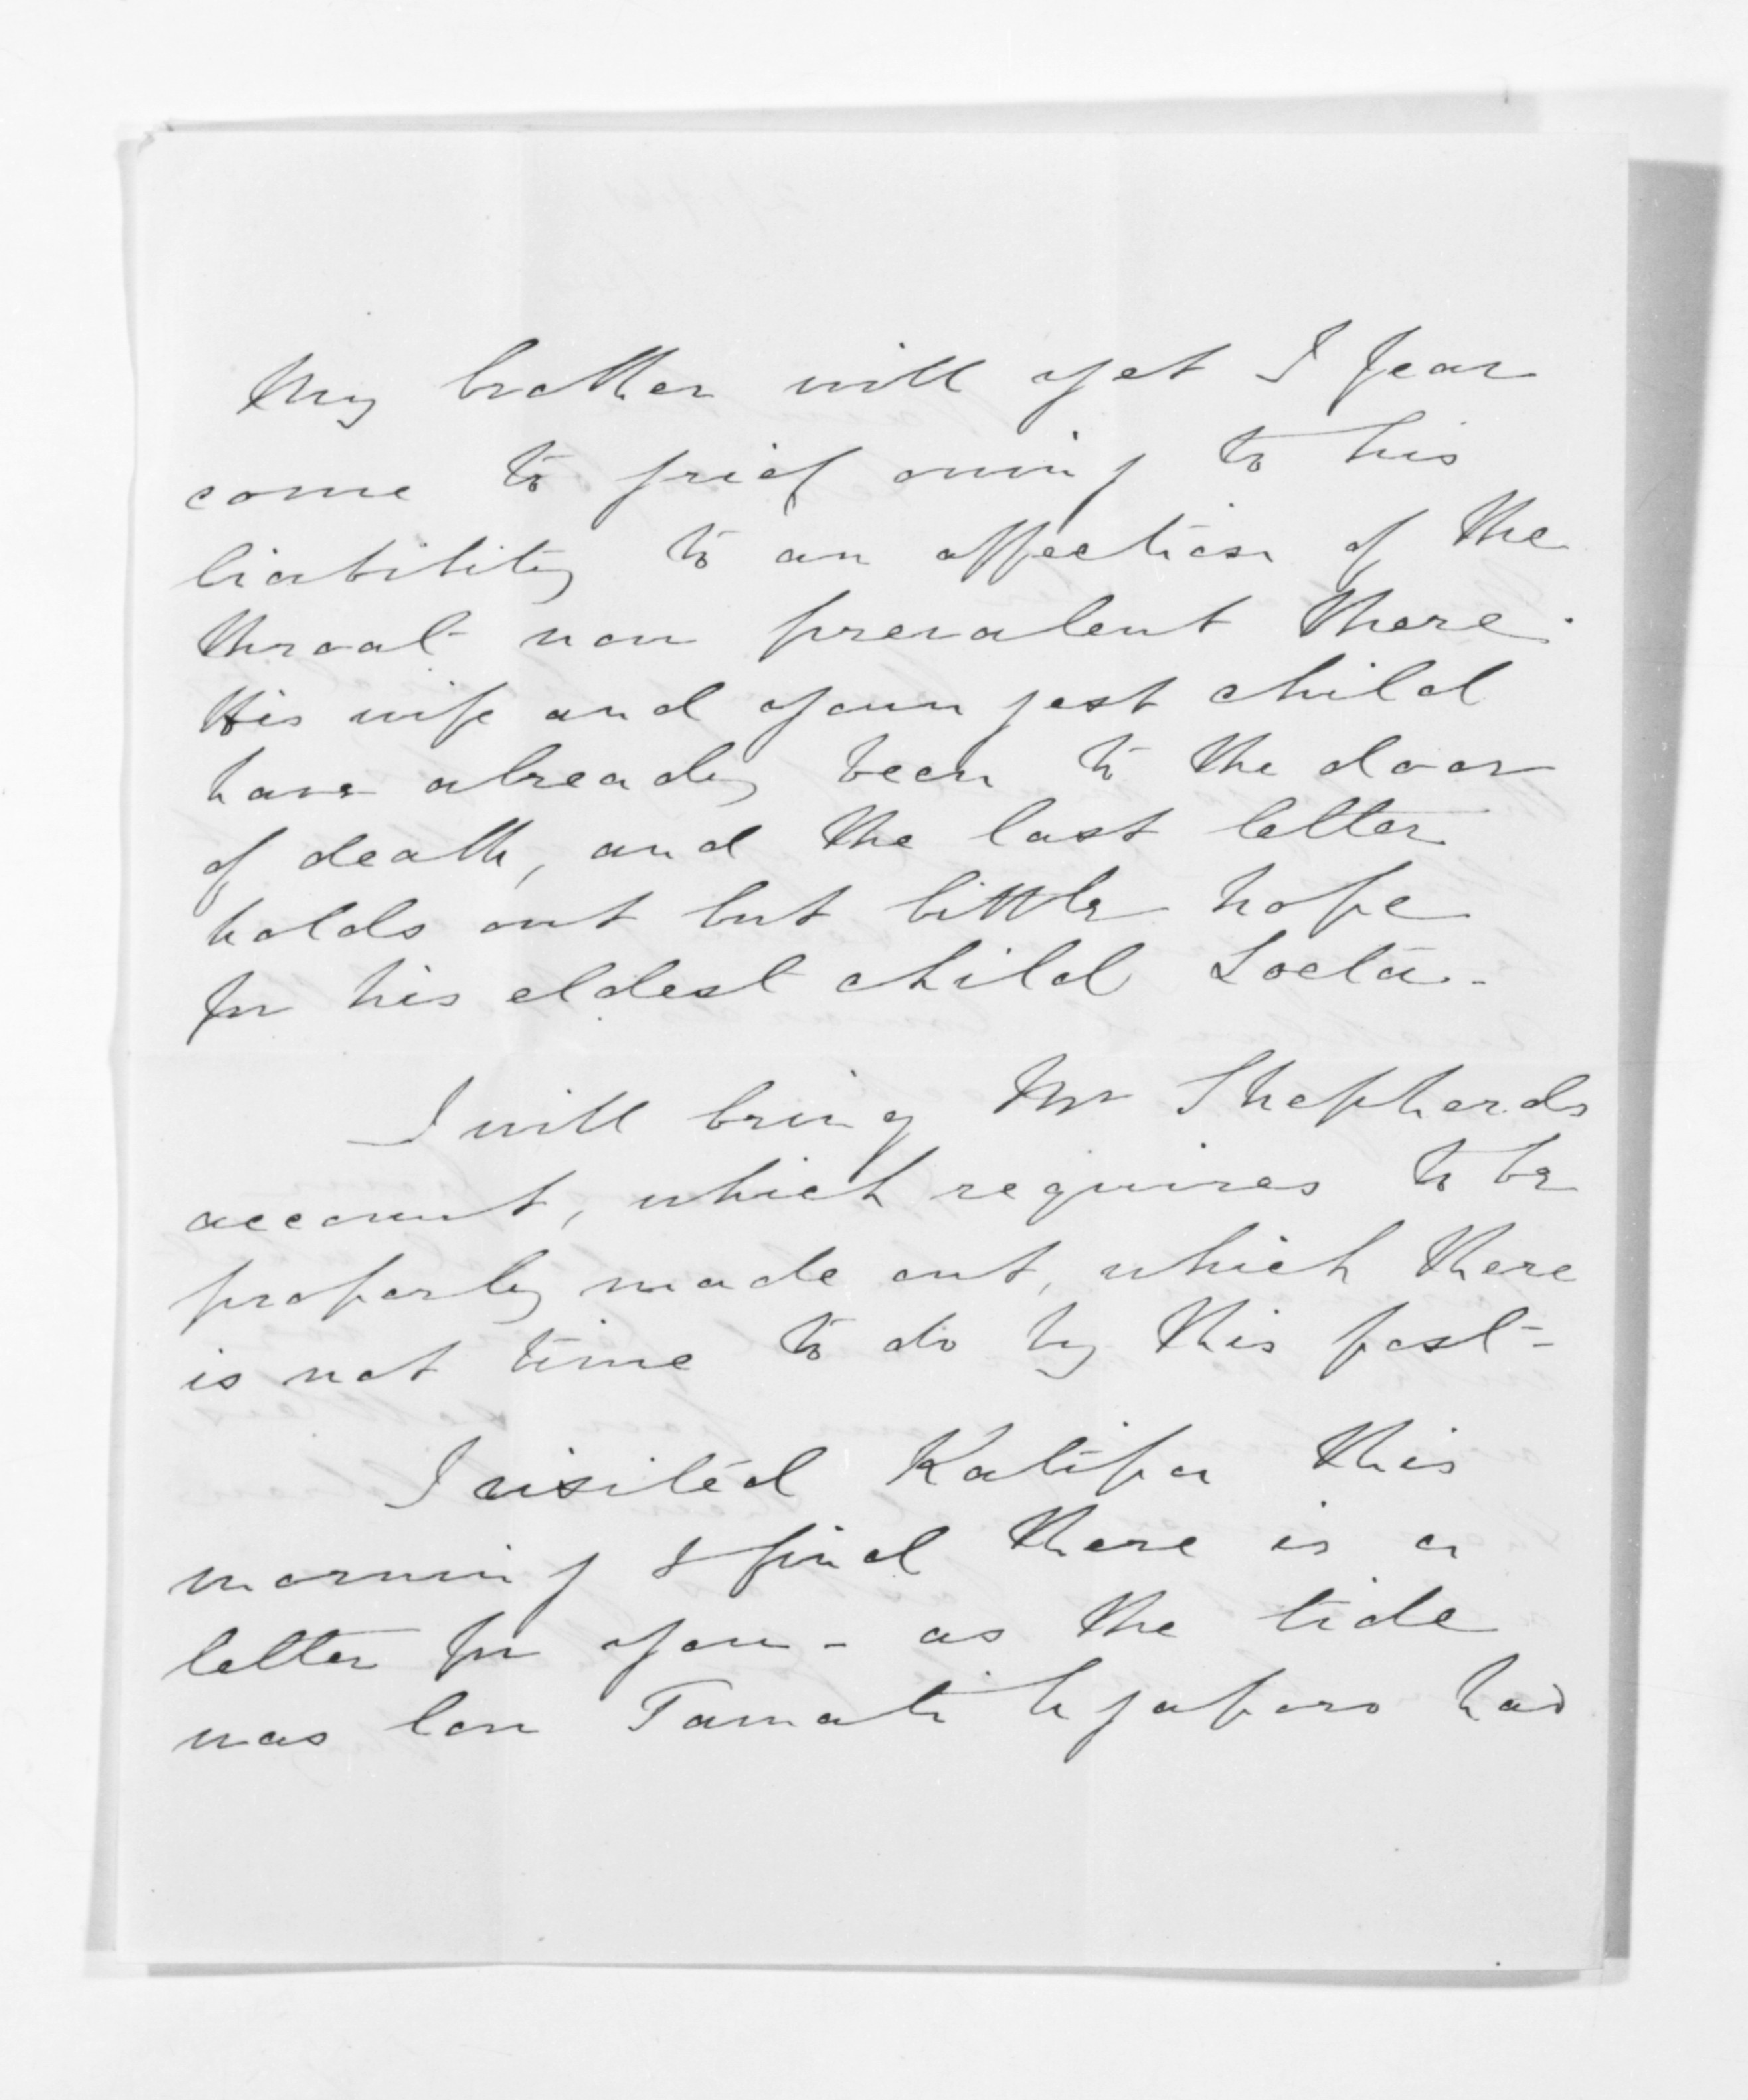 My brother will yet I fear
come to grief owing to his
liability to an affection of the
throat now prevalent there.
His wife and youngest child
have already been to the door
of death, and the last letter
holds out but little hope
for his eldest child
I will bring Mr Shepherds
account, which requires to be
properly made out, which there
is not time to do by this post -
I visited Katipa this
morning & find there is a
letter for you - as the tide
was low Tamati Ngaporo had